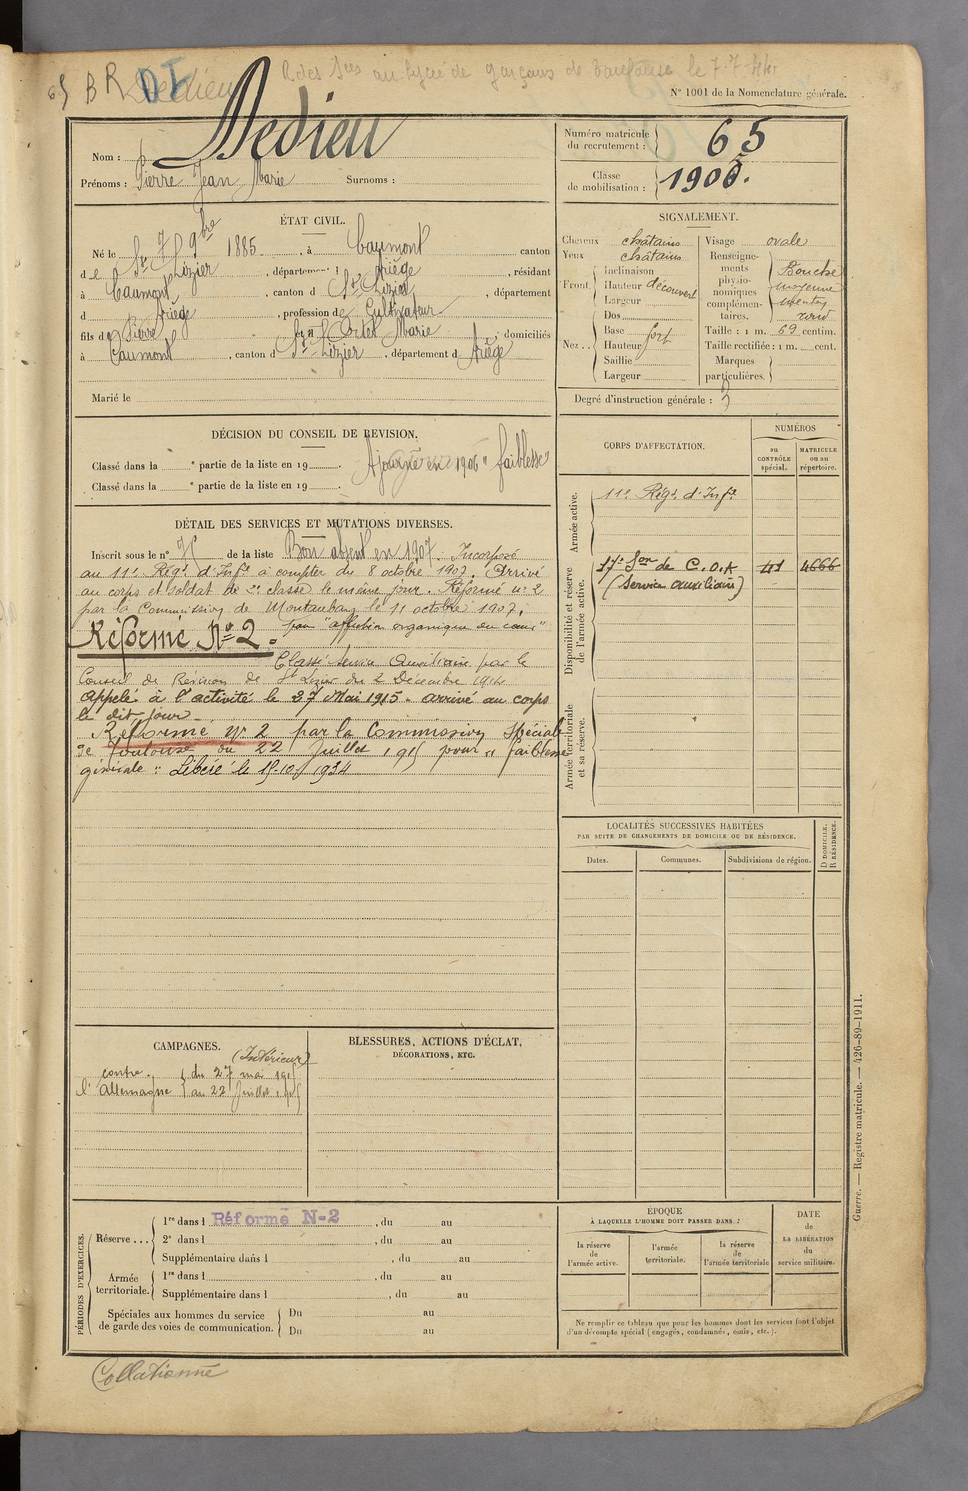 65 B R Dedieu DI R des Sces au lycée de garçons de Toulouse le 7.7.
N° 1001 de la Nomenclature générale.
Nom : Dedieu
Prénoms : Pierre Jean Marie Surnoms :
Numéro matricule du recrutement : 65
Classe de mobilisation : 1905.
ÉTAT CIVIL.
Né le 7 9bre 1885, à Caumont canton
de St Lizier, département Ariège, résidant
à Caumont, canton d St Lizier, département
d Ariège, profession de Cultivateur
fils de Pierre et d Marie, domiciliés
à Caumont, canton d St Lizier, département d Ariège
Marié le
SIGNALEMENT.
Cheveux châtains
Yeux châtains
Front Inclinaison
Hauteur découvert
Largeur
Nez Dos
Base fort
Hauteur
Saillie
Largeur
Visage ovale
Renseignements physionomiques complémentaires. Bouche moyenne menton rond
Taille : 1 m. 69 centim.
Taille rectifiée : 1 m. cent.
Marques particulières.
Degré d'instruction générale : 3
DÉCISION DU CONSEIL DE REVISION.
Classé dans la e partie de la liste en 19 . Ajourné en 1906 "faiblesse"
Classé dans la e partie de la liste en 19 .
DÉTAIL DES SERVICES ET MUTATIONS DIVERSES.
Inscrit sous le n° de la liste Bon absent en 1907. Incorporé
au 11e Régt d'Infie à compter du 8 octobre 1907. Arrivé
au corps et soldat de 2e classe le même jour. Réformé n° 2
par la Commission de Montauban le 11 octobre 1907.
pour "affection organique du cœur"
Réformé N° 2.
Classé service Auxiliaire par le
Conseil de Revision de St Lizier du 2 Décembre 1914
Appelé à l'activité le 27 Mai 1915. arrivé au corps
le dit jour.
Réformé N° 2 par la Commission Spéciale
de Toulouse du 22 Juillet 1915 pour "faiblesse
générale". Libéré le 15-10-1934
CORPS D'AFFECTATION.
NUMÉROS
au CONTRÔLE spécial.
MATRICULE ou au répertoire.
Armée active.
11e Régt d'Infie
Disponibilité et réserve de l'armée active.
17e Son de C.O.A 41 4666
(Service auxiliaire)
Armée territoriale et sa réserve.
LOCALITÉS SUCCESSIVES HABITÉES
PAR SUITE DE CHANGEMENTS DE DOMICILE OU DE RÉSIDENCE.
Dates. Communes. Subdivisions de région. D DOMICILE. R RÉSIDENCE.
CAMPAGNES.
(Intérieur)
contre du 27 mai 1915
l'Allemagne au 22 Juillet 1915
BLESSURES, ACTIONS D'ÉCLAT,
DÉCORATIONS, ETC.
PÉRIODES D'EXERCICES.
Réserve ... 1re dans l Réformé N-2, du au
2e dans l , du au
Supplémentaire dans l , du au
Armée territoriale. 1re dans l , du au
Supplémentaire dans l , du au
Spéciales aux hommes du service de garde des voies de communication. Du au
Du au
ÉPOQUE
À LAQUELLE L'HOMME DOIT PASSER DANS :
la réserve de l'armée active. l'armée territoriale. la réserve de l'armée territoriale
DATE de LA LIBÉRATION du service militaire.
Ne remplir ce tableau que pour les hommes dont les services font l'objet
d'un décompte spécial (engagés, condamnés, omis, etc.).
Guerre. — Registre matricule. — 426-89-1911.
Collationné